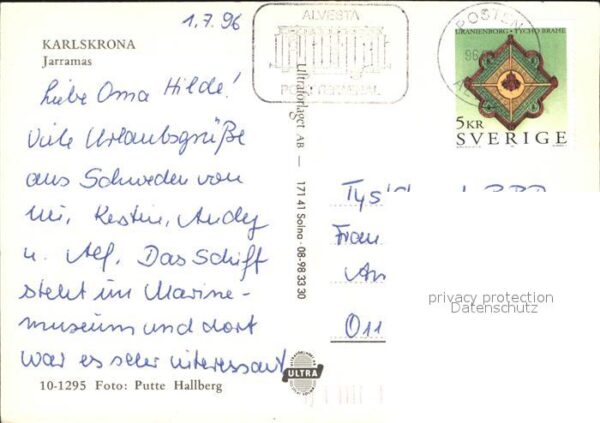 1.7.96
ALVESTA
POSTTERMINAL
POSTEN
URANIENBORG · TYCHO BRAHE
5 KR
SVERIGE
KARLSKRONA
Jarramas
Liebe Oma Hilde!
Viele Urlaubsgrüße
aus Schweden von
Kestin, Andy
u. Alf. Das Schiff
steht im Marine-
museum und dort
war es sehr interessant
10-1295 Foto: Putte Hallberg
Ultraförlaget AB — 171 41 Solna · 08-98 33 30
ULTRA
Tys
Frau
An
O 11
privacy protection
Datenschutz